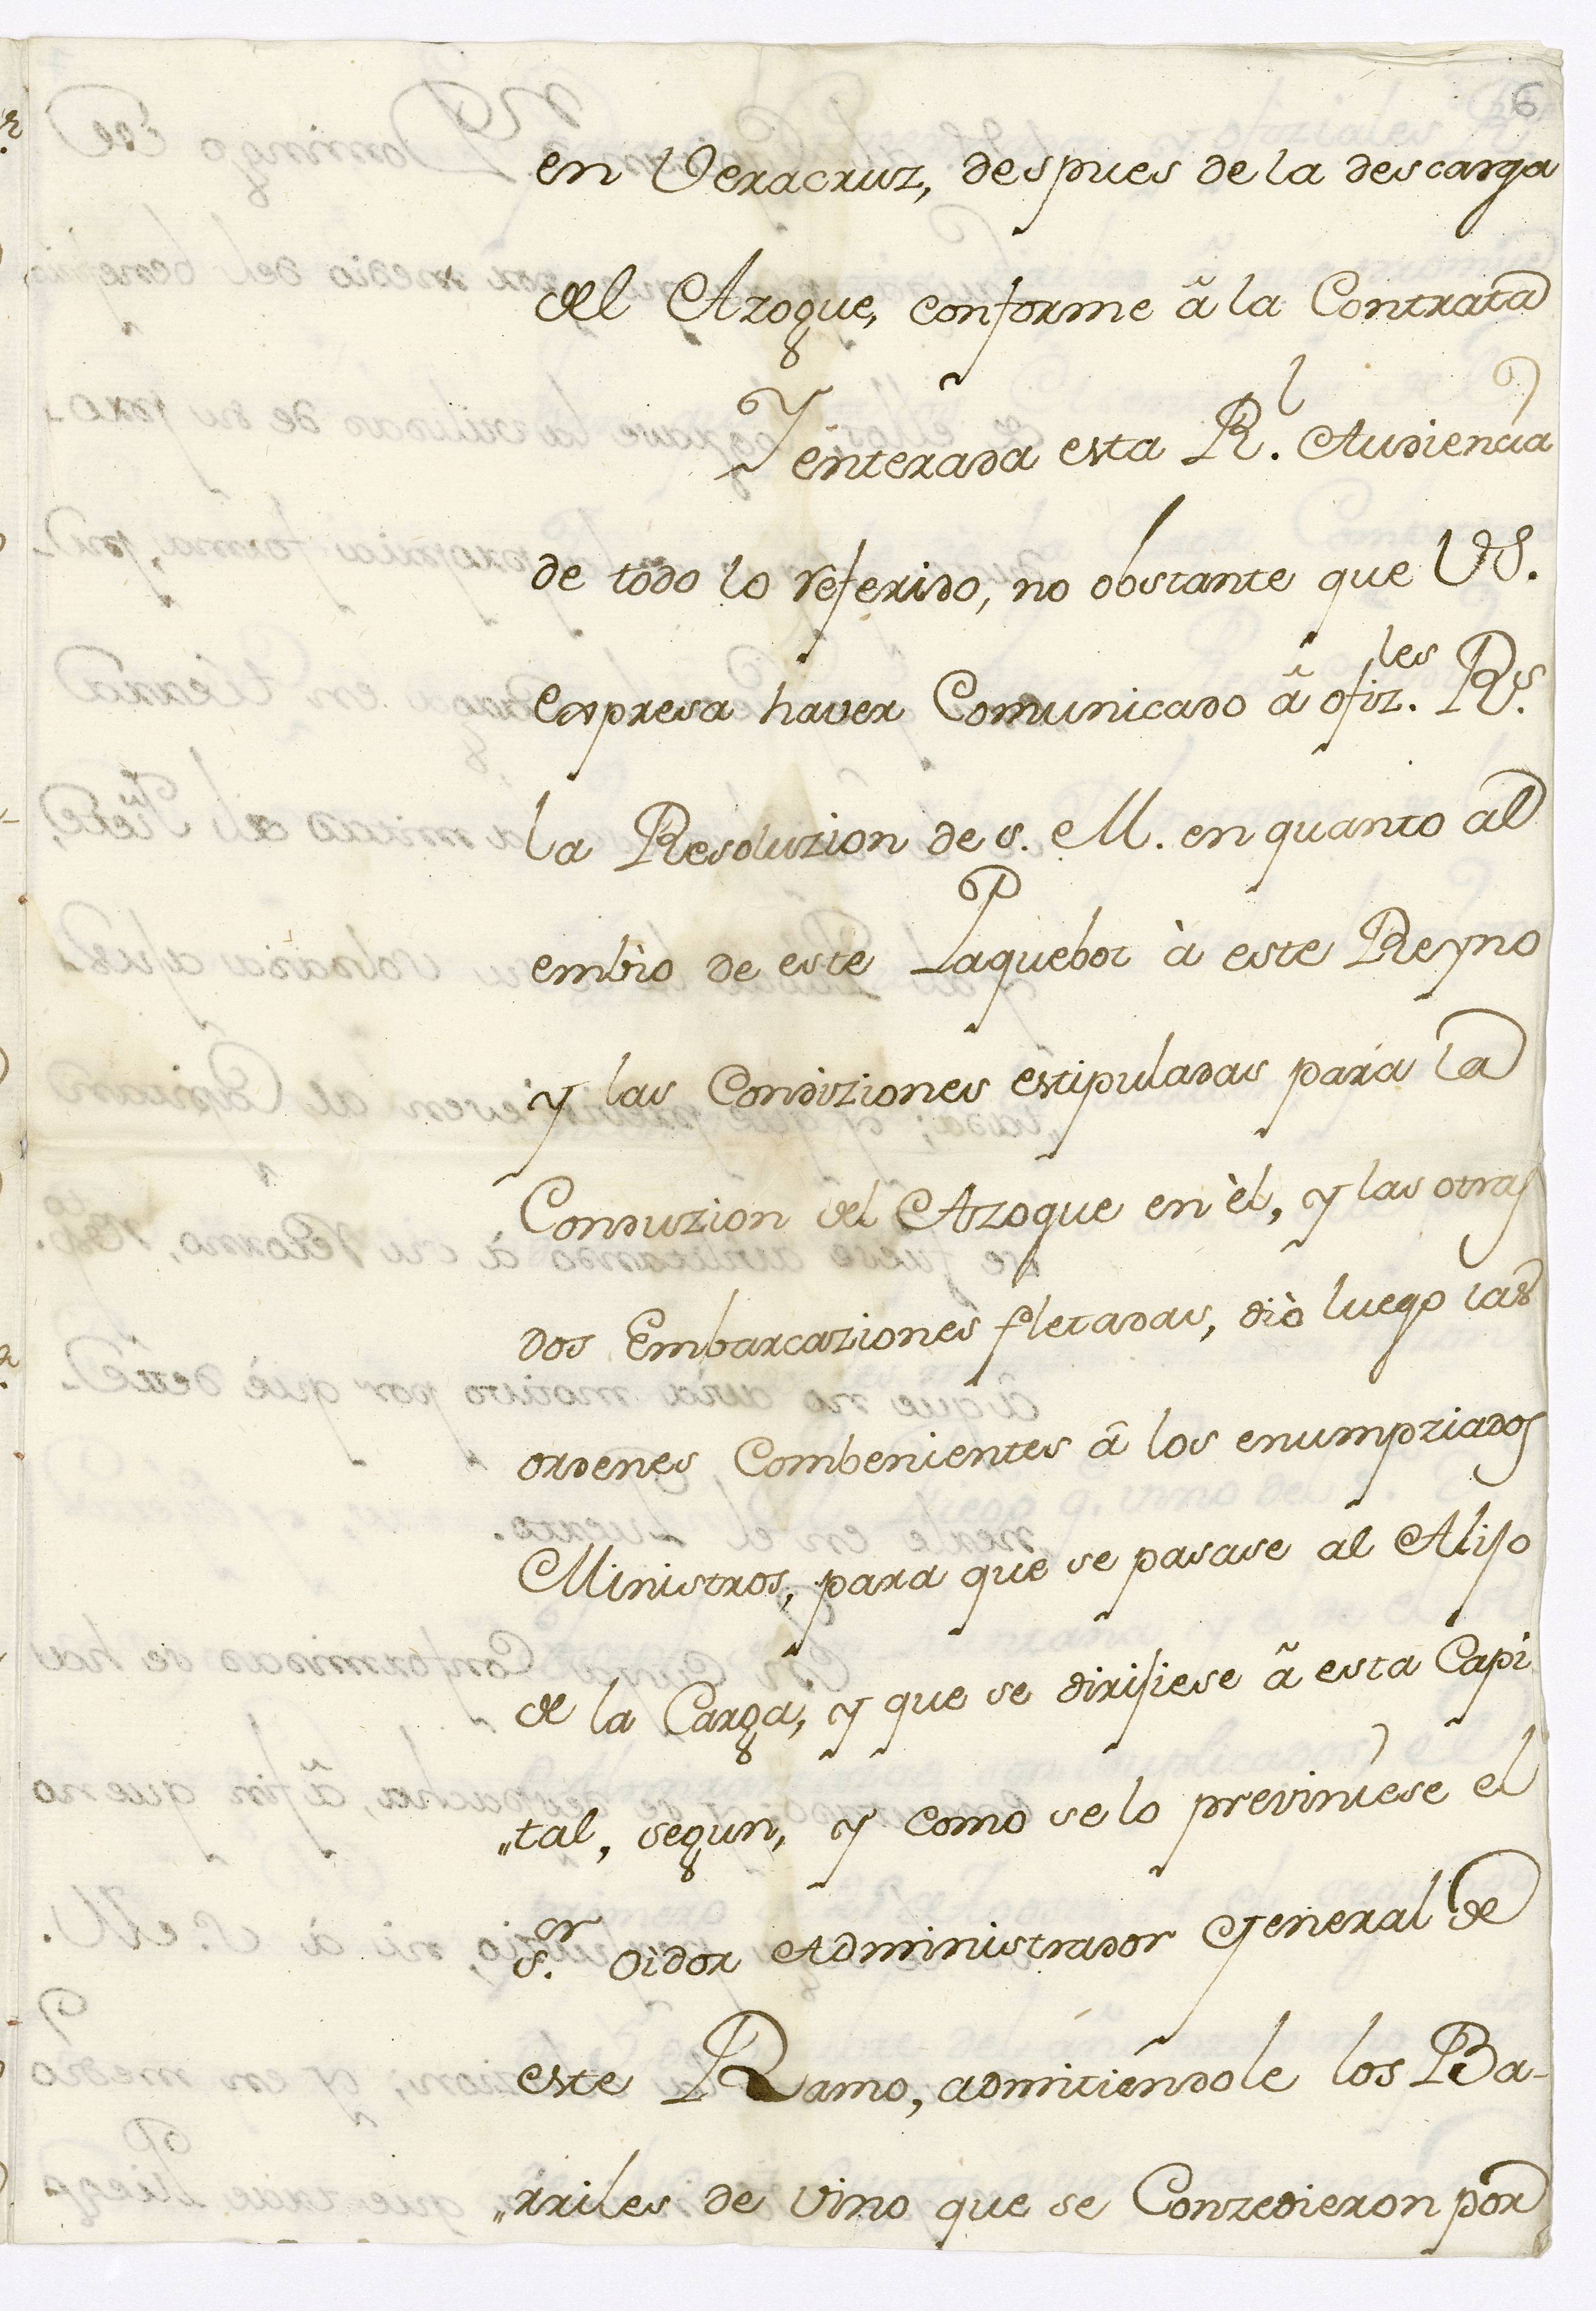 6
en Veracruz, despues de la descarga
del Azogue, conforme â la Contrata
Y enterada esta Rl. Audiencia
de todo lo referido, no obstante que VS.
expresa haver Comunicado â ofizles. Rs.
la Resoluzion de s. M. en quanto al
embio de este Paquebot à este Reyno
y las Condiziones estipuladas para la
Conduzion del Azogue en èl, y las otras
dos Embarcaziones fletadas, diò luego las
ordenes Combenientes â los enumpziados
Ministros, para que se pasase al Alijo
de la Carga, y que se dirijiese â esta Capi
„tal, segun, y como se lo previniese el
sor. Oidor Administrador General de
este Ramo, admitiendole los Ba-
„rriles de vino que se Conzedieron por